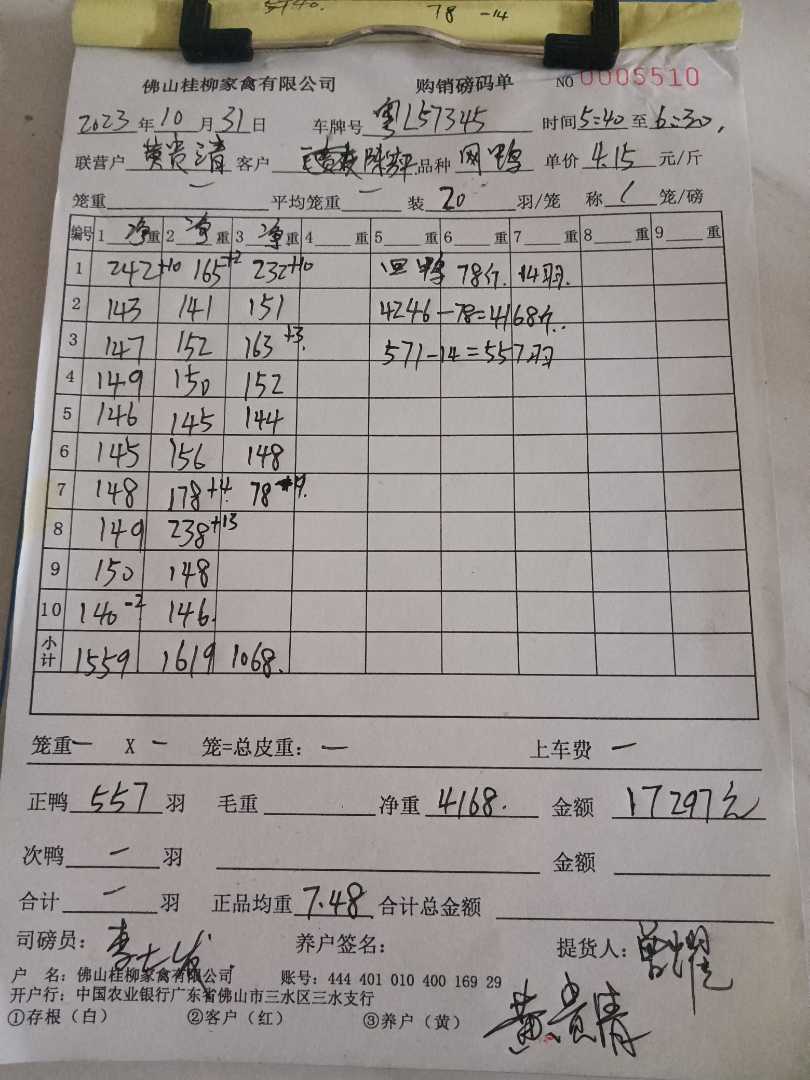 5140. 78 -14
佛山桂柳家禽有限公司 购销磅码单 NO 0005510
2023 年 10 月 31 日 车牌号 粤L57345 时间 5:40 至 6:30,
联营户 黄贵清 客户 品种 网鸭 单价 4.15 元/斤
笼重 一 平均笼重 一 装 20 羽/笼 称 1 笼/磅
编号 1 净重 2 净重 3 净重 4 重 5 重 6 重 7 重 8 重 9 重
1 242+10 165+2 232+10 回鸭 78斤. 14羽.
2 143 141 151 4246-78=4168斤.
3 147 152 163+3. 571-14=557羽
4 149 150 152
5 146 145 144
6 145 156 148
7 148 178+4 78
8 149 238+13
9 150 148
10 140-2 146.
小计 1559 1619 1068.
笼重 一 X 一 笼=总皮重: 一 上车费 一
正鸭 557 羽 毛重 净重 4168. 金额 17297元
次鸭 一 羽 金额
合计 一 羽 正品均重 7.48 合计总金额
司磅员: 养户签名: 提货人: 曾耀
户 名: 佛山桂柳家禽有限公司 账号: 444 401 010 400 169 29
开户行: 中国农业银行广东省佛山市三水区三水支行
①存根（白） ②客户（红） ③养户（黄） 黄贵清